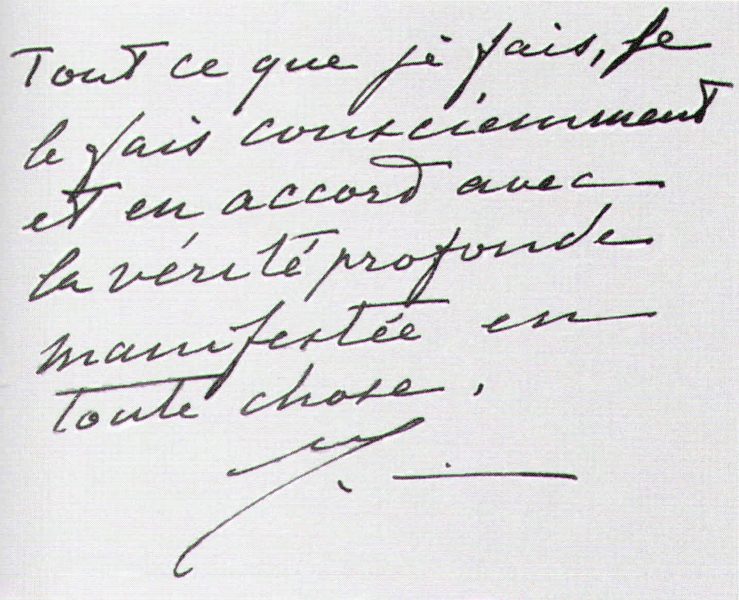 Tout ce que je fais, je
le fais consciemment
et en accord avec
la vérité profonde
manifestée en
toute chose.